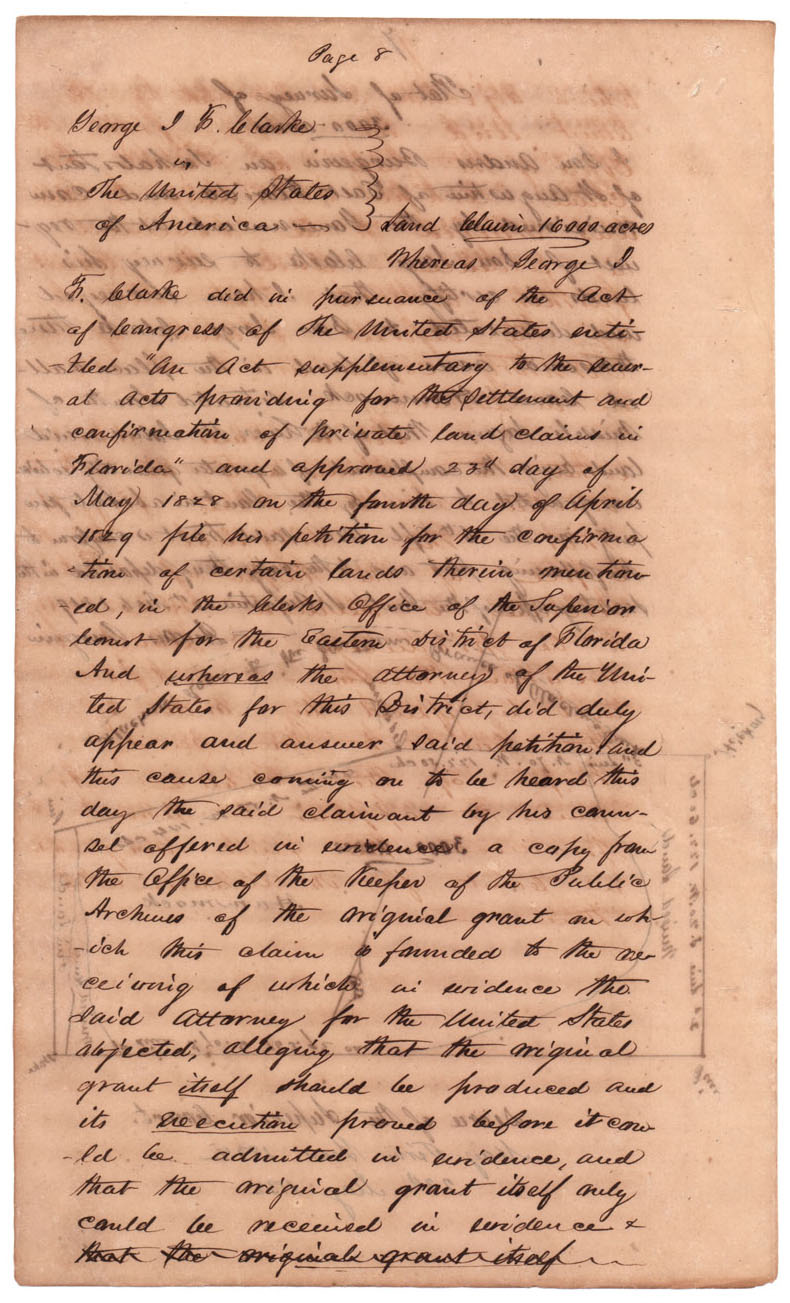 Page 8
George I F. Clarke
vs
The United States
of America — Land Claim 16000 acres
Whereas George I
F. Clarke did in pursuance of the Act
of Congress of The United States enti-
tled "An Act supplementary to the sever-
al acts providing for the settlement and
confirmation of private land claims in
Florida" and approved 23d day of
May 1828 on the fourth day of April
1829 file his petition for the confirma
-tion of certain lands therein mention-
-ed, in the Clerks Office of the Superior
Court for the Eastern District of Florida
And whereas the attorney of the Uni-
ted States for this District, did duly
appear and answer said petition and
this cause coming on to be heard this
day the said claimant by his coun-
sel offered in evidence a copy from
the Office of the Keeper of the Public
Archives of the original grant on wh-
-ich this claim is founded to the re-
ceiving of which in evidence the
said Attorney for the United States
objected, alleging that the original
grant itself should be produced and
its execution proved before it cou-
-ld be admitted in evidence, and
that the original grant itself only
could be received in evidence &
that the original grant itself